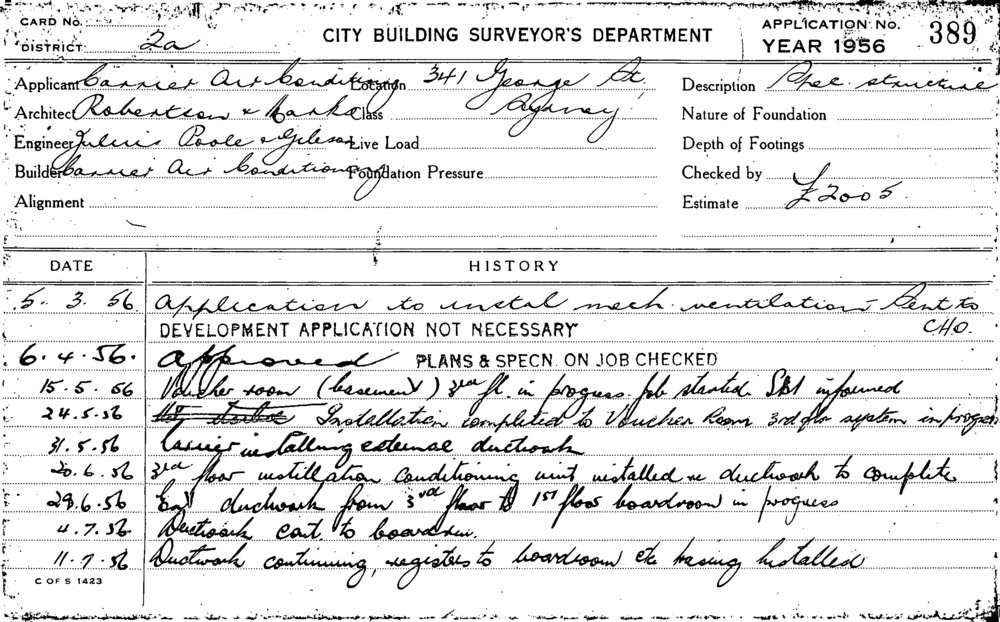 CARD No.
DISTRICT 2a
CITY BUILDING SURVEYOR'S DEPARTMENT
APPLICATION No. 389
YEAR 1956
Applicant Carrier Air Conditioning Location 341 George St, Description Spec. structure
Architect Robertson & Marks Class Sydney Nature of Foundation
Engineer Julius Poole & Gibson Live Load Depth of Footings
Builder Carrier Air Conditioning Foundation Pressure Checked by
Alignment Estimate £2005
DATE HISTORY
5. 3. 56 Application to instal mech. ventilation - Sent to
DEVELOPMENT APPLICATION NOT NECESSARY C.H.O.
6. 4. 56. Approved PLANS & SPECN. ON JOB CHECKED
15. 5. 56 Voucher room (basement) 3rd fl. in progress. Job started. informed
24. 5. 56 Installation completed to Voucher Room 3rd flr system in progress
31. 5. 56 Carrier installing external ductwork
20. 6. 56 3rd floor instillation conditioning unit installed ductwork to complete
28. 6. 56 ductwork from 3rd floor to 1st floor boardroom in progress
4. 7. 56 Ductwork cont. to boardrm.
11. 7. 56 Ductwork continuing, registers to boardroom etc being installed
C OF S 1423